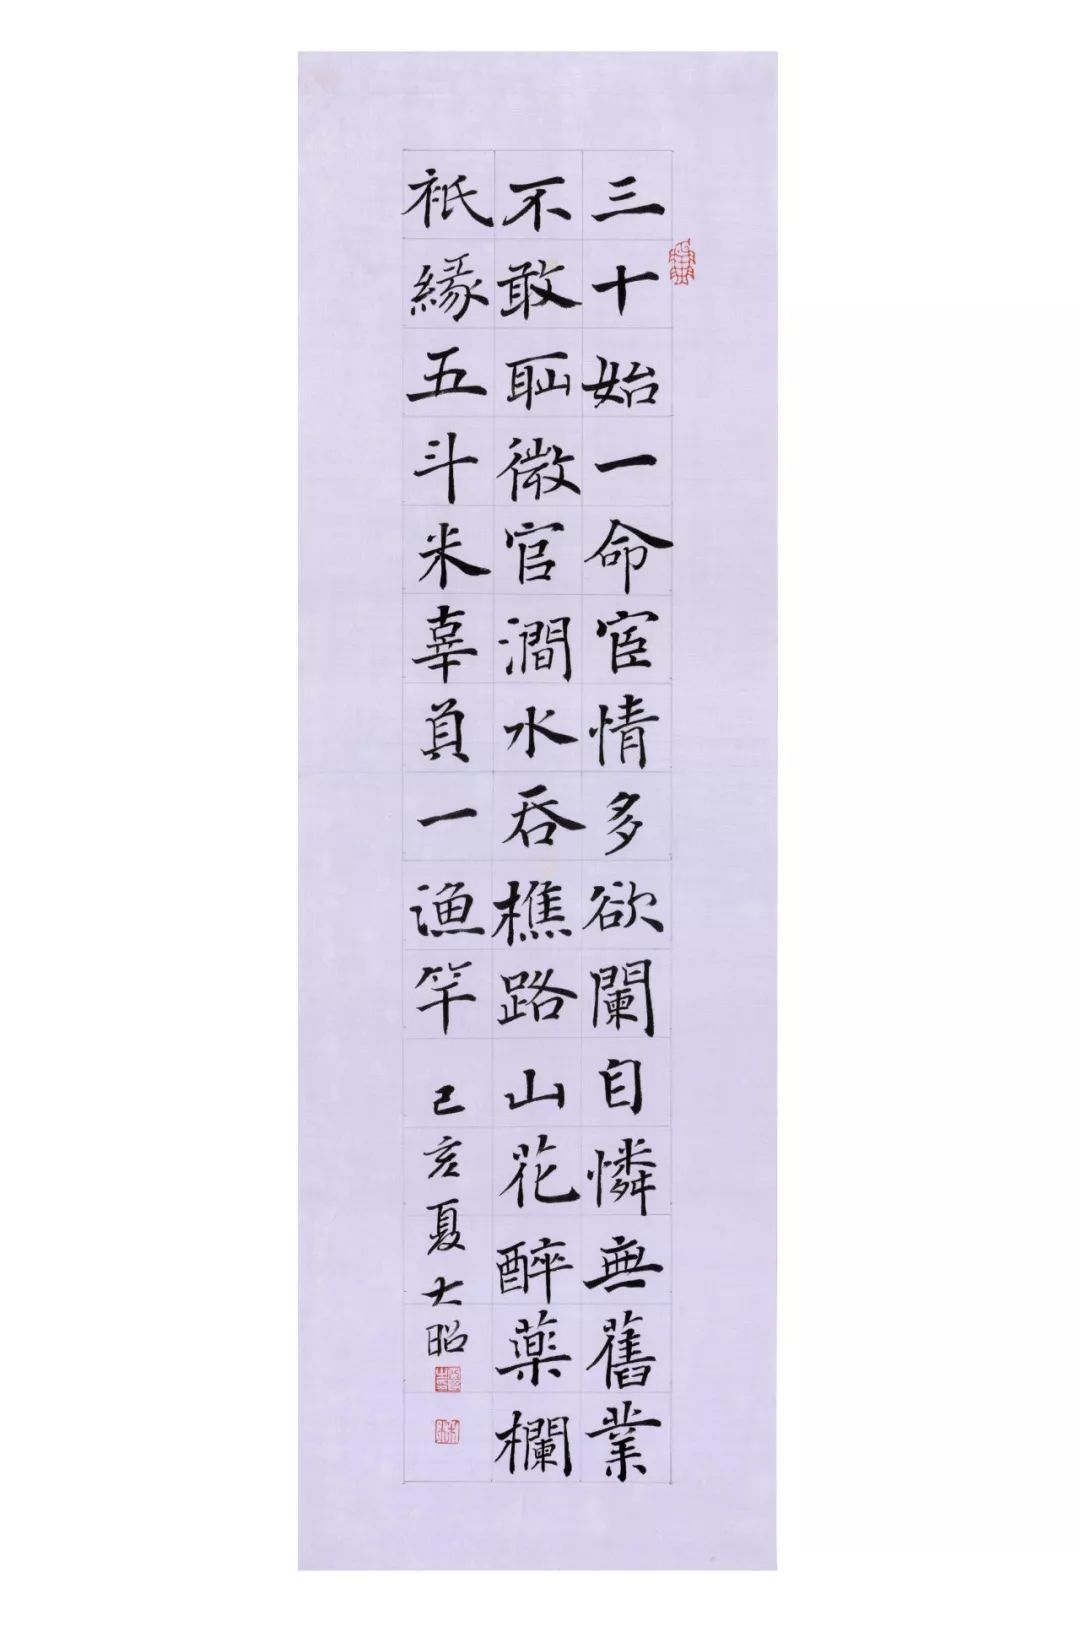 三十始一命宦情多欲闌自憐無舊業
不敢恥微官澗水吞樵路山花醉藥欄
祇緣五斗米辜負一漁竿
己亥夏大昭